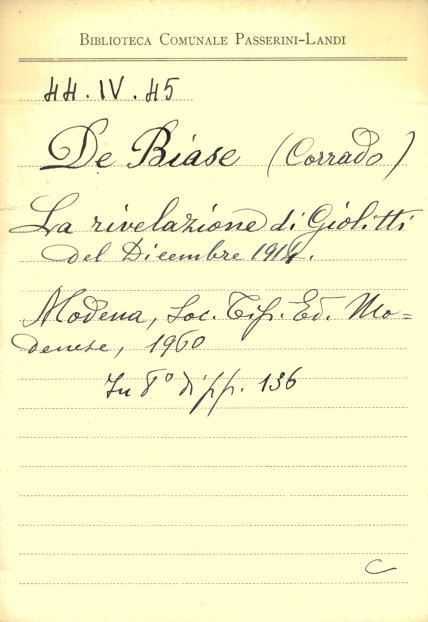 BIBLIOTECA COMUNALE PASSERINI-LANDI
44. IV. 45
De Biase (Corrado)
La rivelazione di Giolitti
del Dicembre 1914.
Modena, Soc. Tip. Ed. Mo=
denese, 1960
In 8° di pp. 136
C